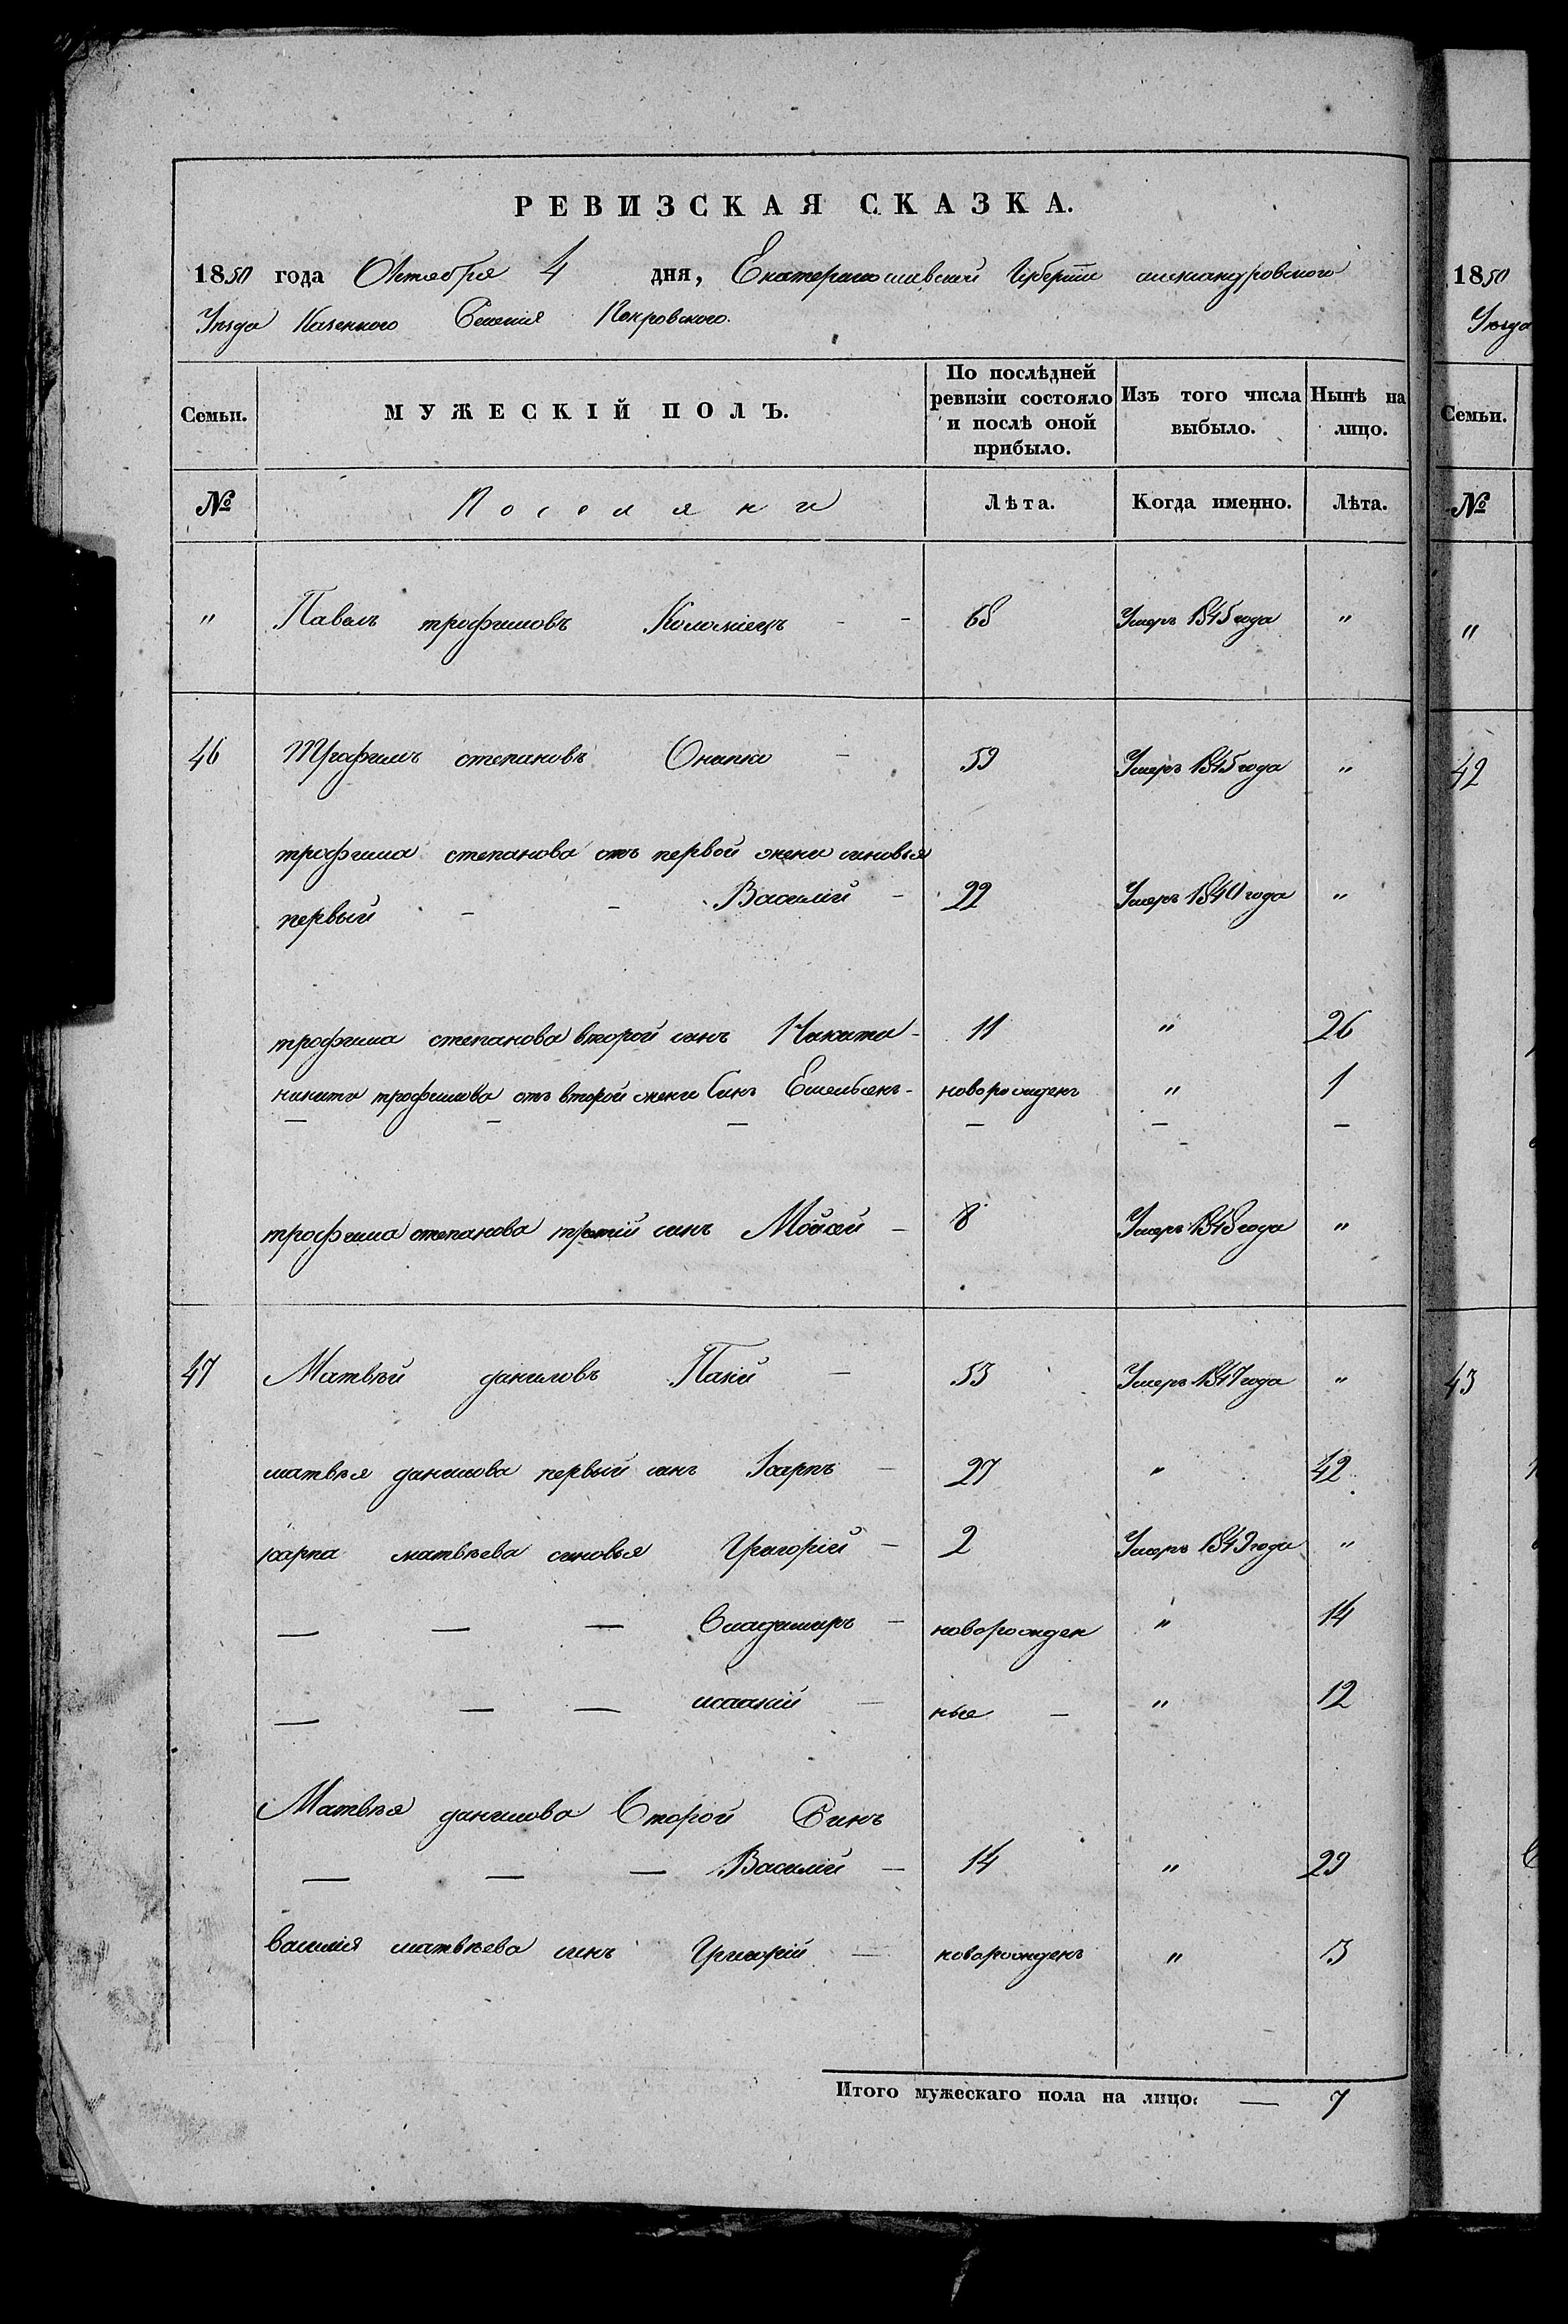 РЕВИЗСКАЯ СКАЗКА.
1850 года Октября 4 дня, Екатеринославской Губерніи александровского
Уѣзда Казенного Селенія Покровского.
Семьи. МУЖЕСКІЙ ПОЛЪ. По послѣдней ревизіи состояло и послѣ оной прибыло. Изъ того числа выбыло. Нынѣ на лицо.
№ Поселяни Лѣта. Когда именно. Лѣта.
" Павелъ трофимовъ Коломіецъ - - 68 Умеръ 1845 года "
46 Трофимъ степановъ - 59 Умеръ 1845 года "
трофима степанова отъ первой жени синовья
первый - - Василій - 22 Умеръ 1840 года "
трофима степанова второй синъ Никита - 11 " 26
никити трофимова отъ второй жени Синъ - новорожденъ " 1
— — — — — —
трофима степанова третій синъ Мойсей - 8 Умеръ 1848 года "
47 Матвѣй даниловъ - 53 Умеръ 1847 года "
матвѣя данилова первый синъ Карпъ - 27 " 42
карпа матвѣева синовья Григорій - 2 Умеръ 1849 года "
— — — Владимиръ - новорожден " 14
— — — исаакій - ные - " 12
Матвѣя данилова Второй Синъ
— — — Василій - 14 " 29
Василія матвѣева синъ Григорій - новорожденъ " 3
Итого мужескаго пола на лицо: — 7
1850
Уѣзда
Семьи.
№
"
42
43